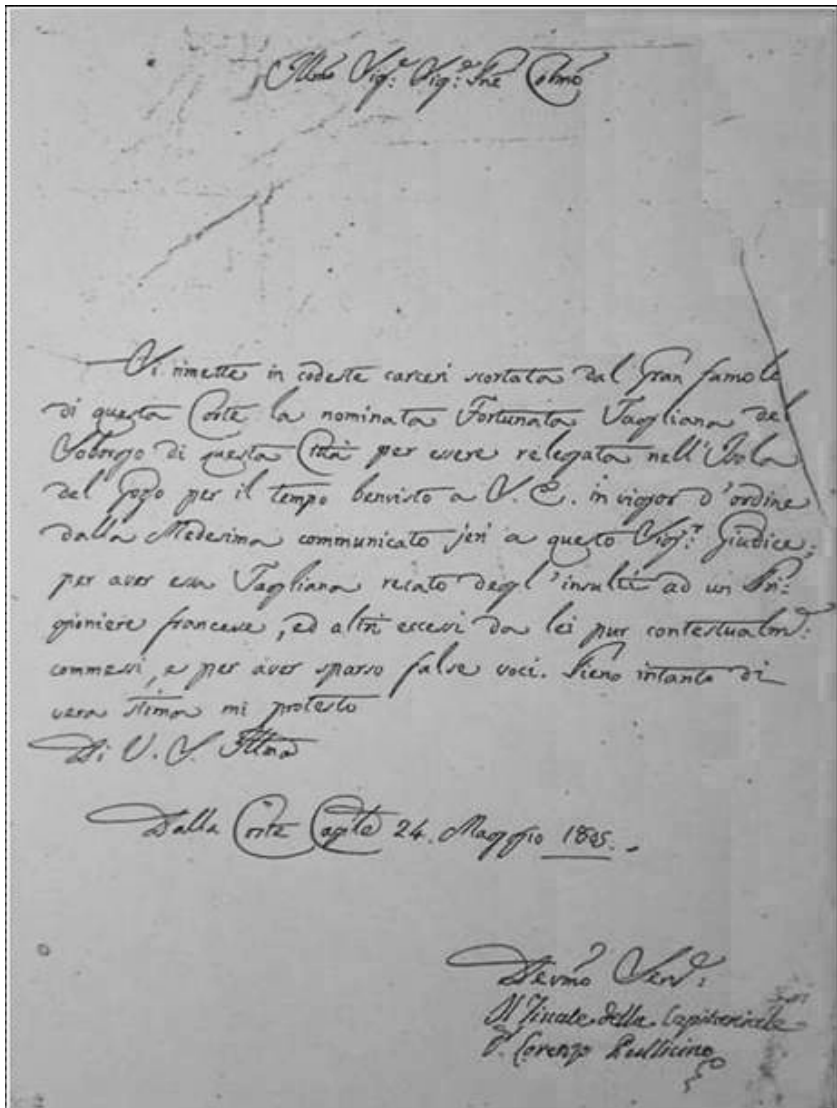 Illmo Sig:e Sig:e Pñe Colmo
Si rimette in codeste carceri scortata dal Gran famolo
di questa Corte la nominata Fortunata Tagliana del
Soborgo di questa Città per essere relegata nell'Isola
del Gozo per il tempo benvisto a S. E. in vigor d'ordine
dalla Medesima communicato jeri a questo Sig:r Giudice;
per aver essa Tagliana recato degl'insulti ad un Pri:
gioniere francese, ed altri eccessi da lei pur contestualmе:
commessi, e per aver sparso false voci. Pieno intanto di
vera stima mi protesto
Di V. S. Illma
Dalla Corte Capitle 24. Maggio 1805.
Devmo Serve:
Il Fiscale della Capitaniale
Dr. Lorenzo Pullicino